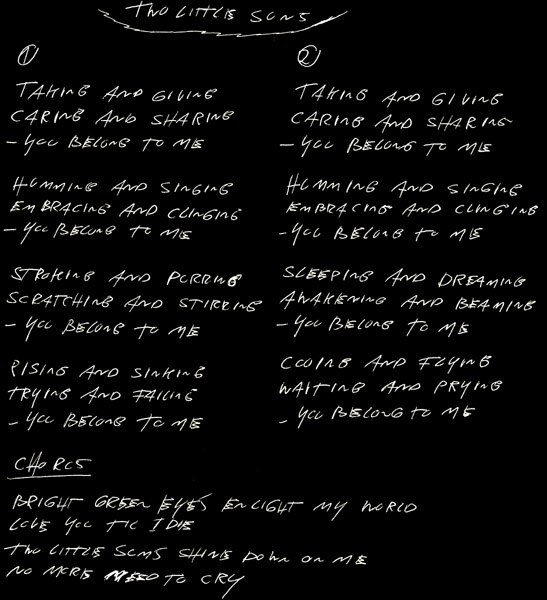 TWO LITTLE SUNS
1
TAKING AND GIVING
CARING AND SHARING
- YOU BELONG TO ME
HUMMING AND SINGING
EMBRACING AND CLINGING
- YOU BELONG TO ME
STROKING AND PURRING
SCRATCHING AND STIRRING
- YOU BELONG TO ME
RISING AND SINKING
TRYING AND FAILING
- YOU BELONG TO ME
2
TAKING AND GIVING
CARING AND SHARING
- YOU BELONG TO ME
HUMMING AND SINGING
EMBRACING AND CLINGING
- YOU BELONG TO ME
SLEEPING AND DREAMING
AWAKENING AND BEAMING
- YOU BELONG TO ME
COOING AND FLYING
WAITING AND PRYING
- YOU BELONG TO ME
CHORUS
BRIGHT GREEN EYES ENLIGHT MY WORLD
LOVE YOU TIL I DIE
TWO LITTLE SUNS SHINE DOWN ON ME
NO MORE NEED TO CRY